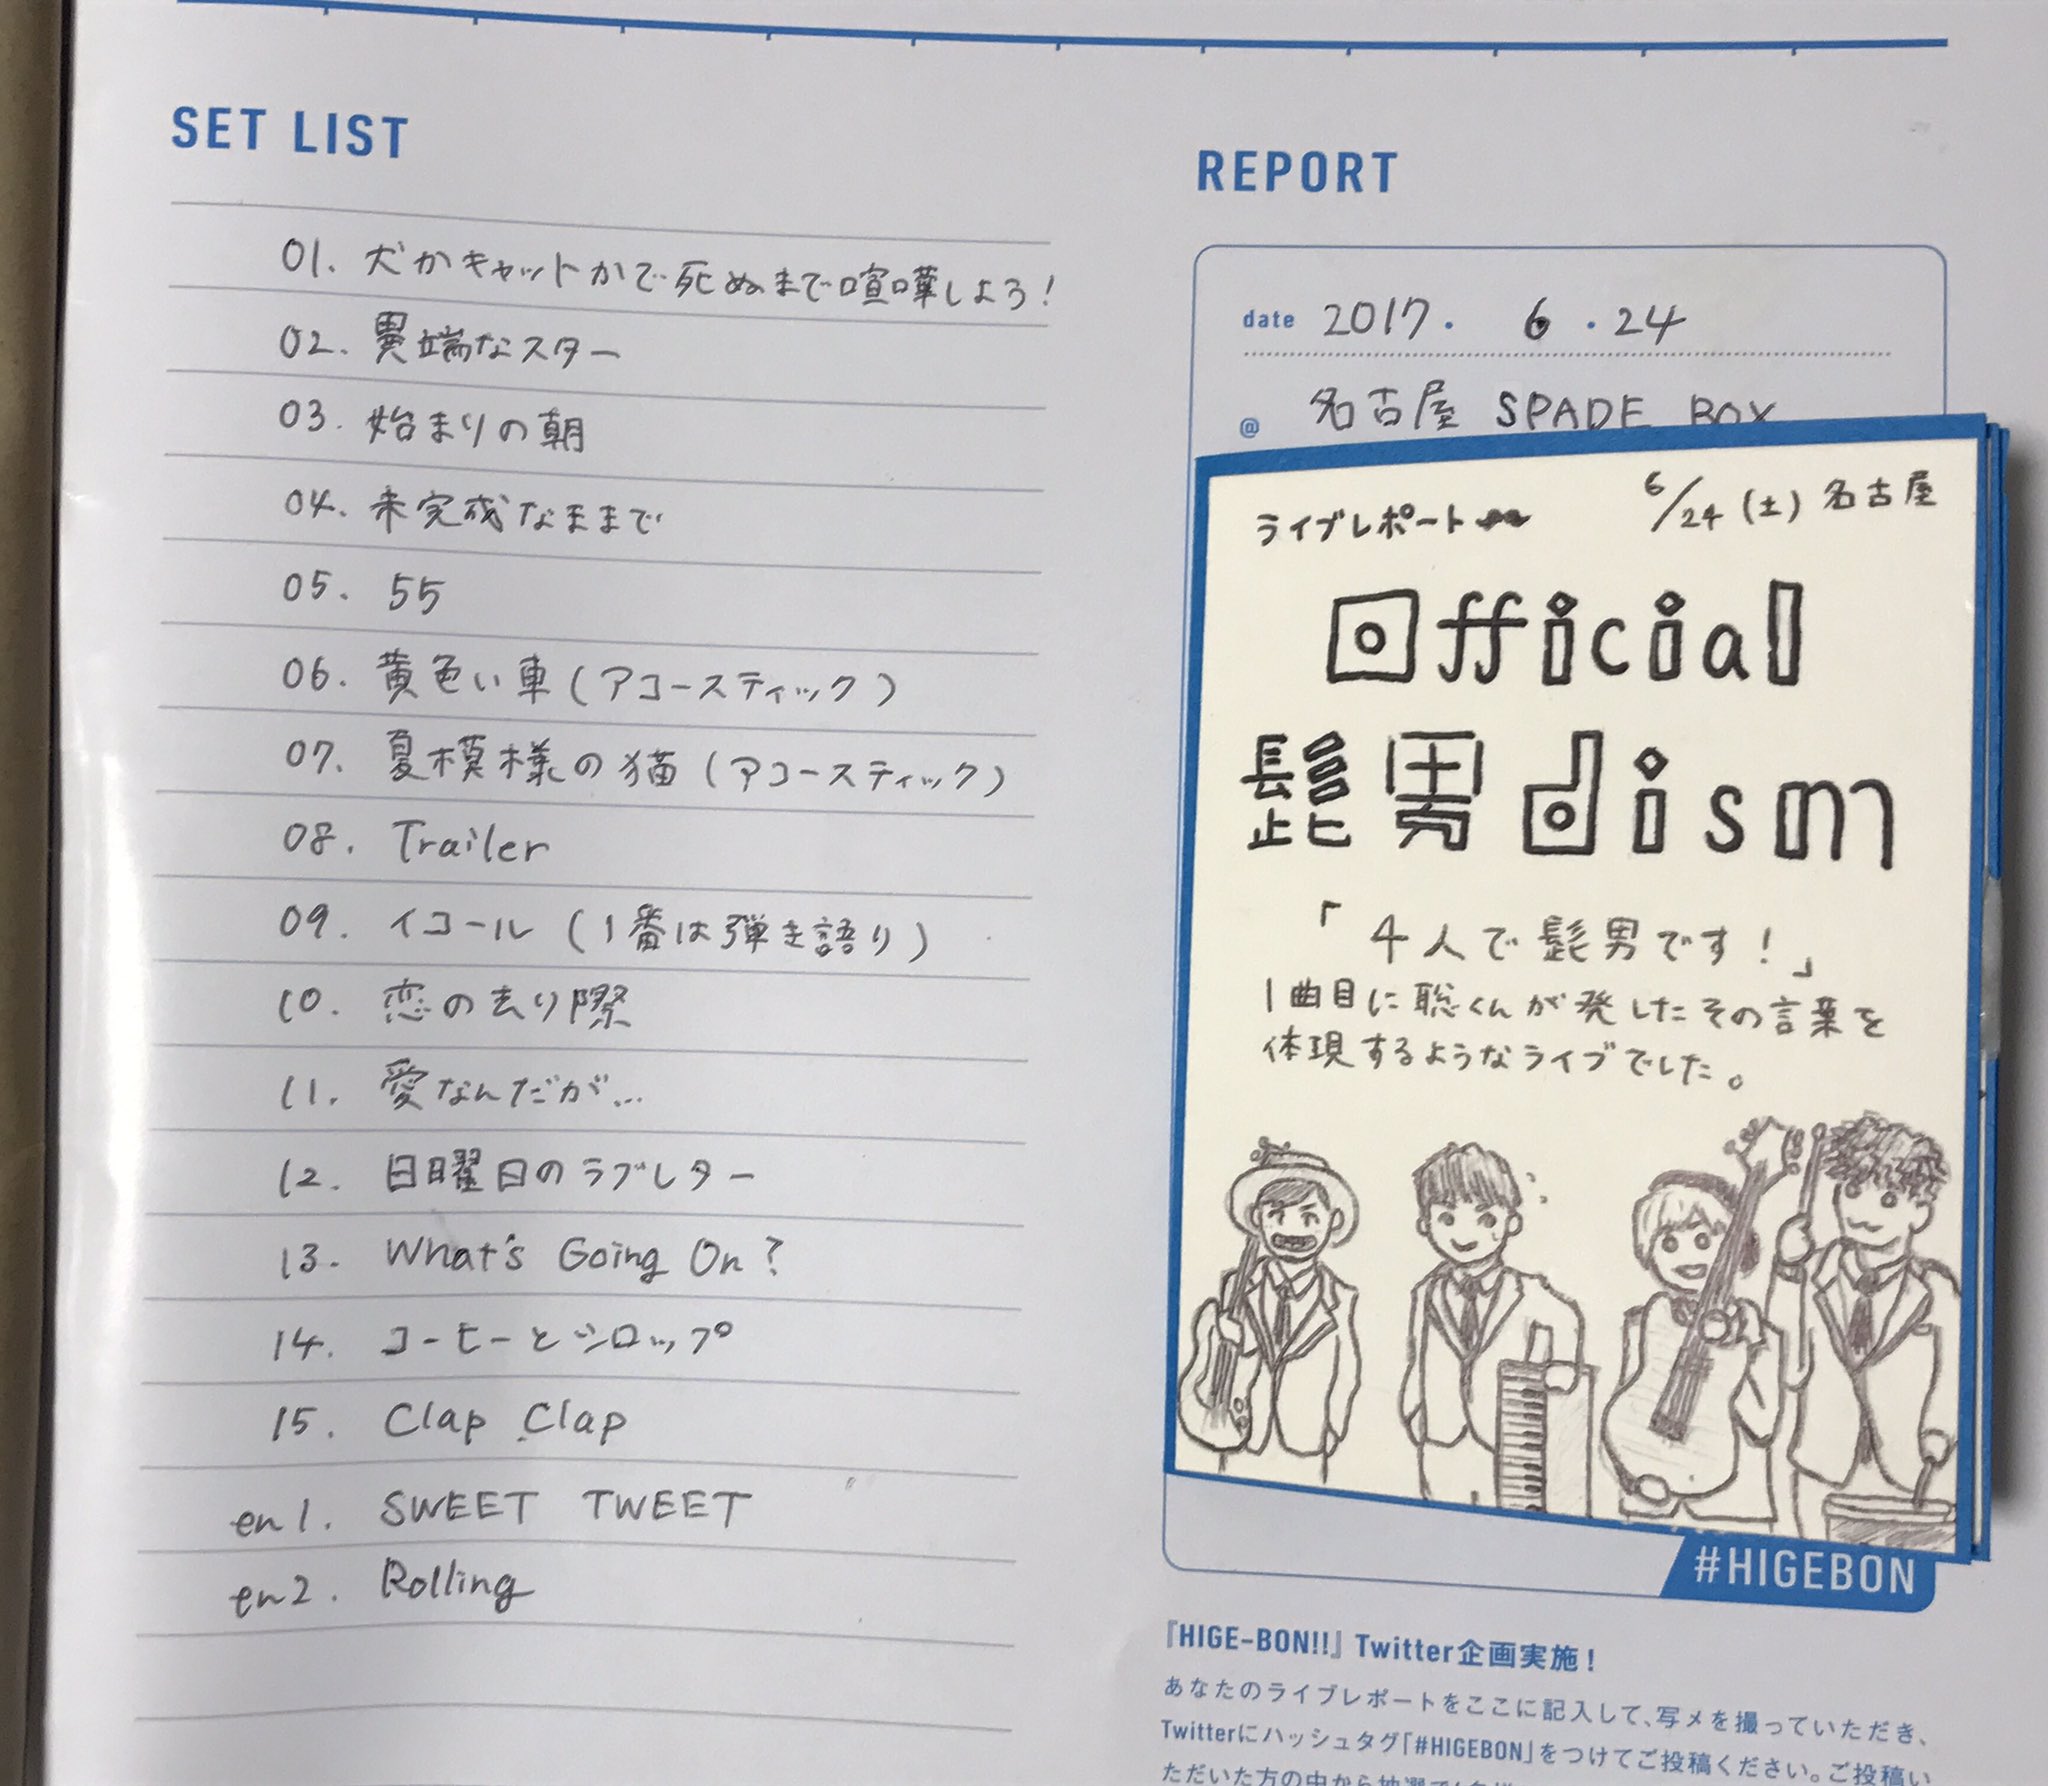 SET LIST
01. 犬かキャットかで死ぬまで喧嘩しよう!
02. 異端なスター
03. 始まりの朝
04. 未完成なままで
05. 55
06. 黄色い車(アコースティック)
07. 夏模様の猫(アコースティック)
08. Trailer
09. イコール(1番は弾き語り)
10. 恋の去り際
11. 愛なんだが...
12. 日曜日のラブレター
13. What's Going On?
14. コーヒーとシロップ
15. Clap Clap
en1. SWEET TWEET
en2. Rolling
REPORT
date 2017. 6.24
@ 名古屋 SPADE BOX
ライブレポート
6/24(土)名古屋
Official
髭男dism
「4人で髭男です!」
1曲目に聡くんが発したその言葉を
体現するようなライブでした。
#HIGEBON
『HIGE-BON!!』Twitter企画実施!
あなたのライブレポートをここに記入して、写メを撮っていただき、
Twitterにハッシュタグ「#HIGEBON」をつけてご投稿ください。ご投稿い
ただいた方の中から抽選で